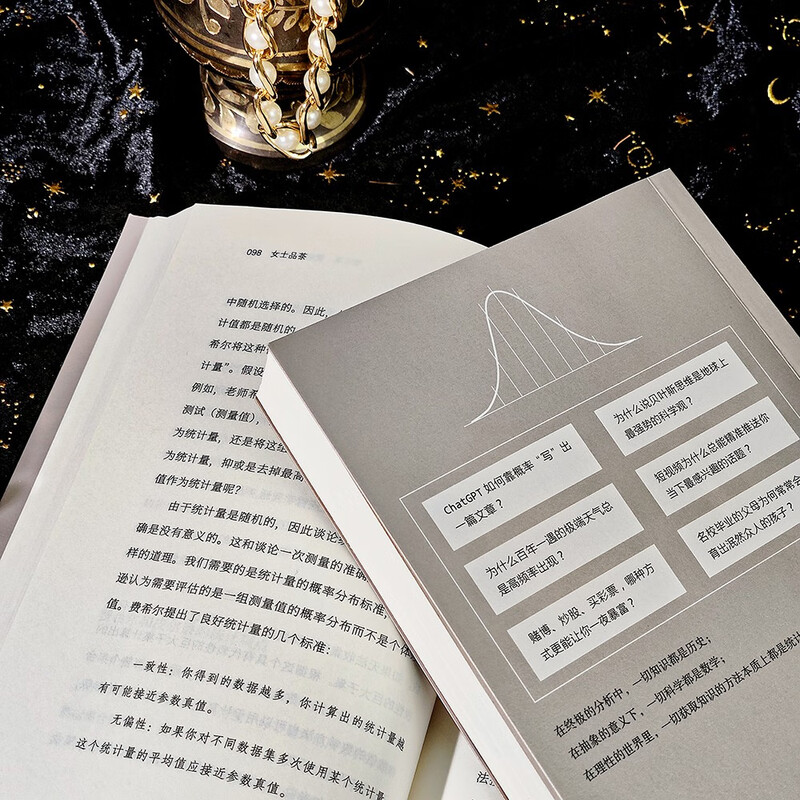 098 女士品茶
中随机选择的。因此,
计值都是随机的
希尔将这种
计量”。假设
例如,老师希
测试(测量值),
为统计量,还是将这组
为统计量,抑或是去掉最高
值作为统计量呢?
由于统计量是随机的,因此谈论
确是没有意义的。这和谈论一次测量的准确
样的道理。我们需要的是统计量的概率分布标准,
逊认为需要评估的是一组测量值的概率分布而不是个体
值。费希尔提出了良好统计量的几个标准:
一致性:你得到的数据越多,你计算出的统计量越
有可能接近参数真值。
无偏性:如果你对不同数据集多次使用某个统计量
这个统计量的平均值应接近参数真值。
法
ChatGPT 如何靠概率“写”出
一篇文章?
为什么说贝叶斯思维是地球上
最强势的科学观?
为什么百年一遇的极端天气总
是高频率出现?
短视频为什么总能精准推送你
当下最感兴趣的话题?
赌博、炒股、买彩票,哪种方
式更能让你一夜暴富?
名校毕业的父母为何常常会
育出泯然众人的孩子?
在终极的分析中,一切知识都是历史;
在抽象的意义下,一切科学都是数学;
在理性的世界里,一切获取知识的方法本质上都是统计